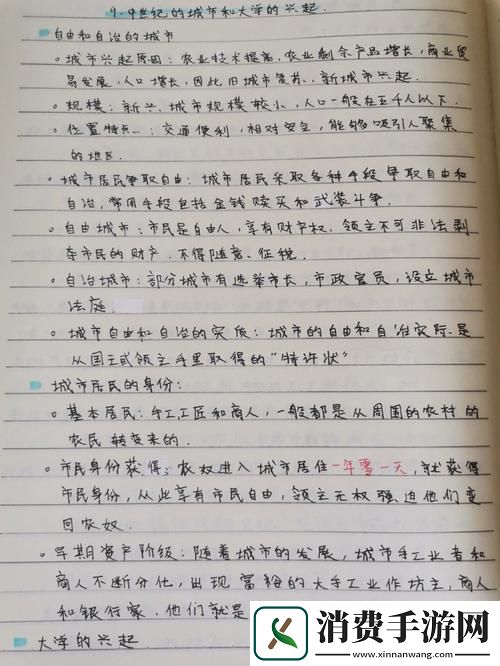 9. 中世纪的城市和大学的兴起.
自由和自治的城市
城市兴起原因: 农业技术提高, 农业剩余产品增长, 商业贸
易发展, 人口增长, 因此旧城市复苏, 新城市兴起.
规模: 新兴城市规模较小, 人口一般在五千人以下.
位置特点: 交通便利, 相对安全, 能够吸引人聚集
的地区.
城市居民争取自由: 城市居民采取各种手段争取自由和
自治, 常用手段包括金钱赎买和武装斗争.
自由城市: 市民是自由人, 享有财产权. 领主不可非法剥
夺市民的财产, 不得随意征税.
自治城市: 部分城市有选举市长, 市政官员, 设立城市
法庭
城市自由和自治的实质: 城市的自由和自治实际是
从国王或领主手里取得的"特许状"
城市居民的身份:
基本居民: 手工工匠和商人, 一般都是从周围的农村的
农民转变来的.
市民身份获得: 农奴进入城市居住一年零一天, 就获得
市民身份, 从此享有市民自由, 领主无权强迫他们变
回农奴.
早期资产阶级: 随着城市的发展, 城市手工业者和
商人不断分化, 出现富裕的大手工业作坊主, 商人
和银行家, 他们就是
大学的兴起
消费手游网
www.xinnanwang.com